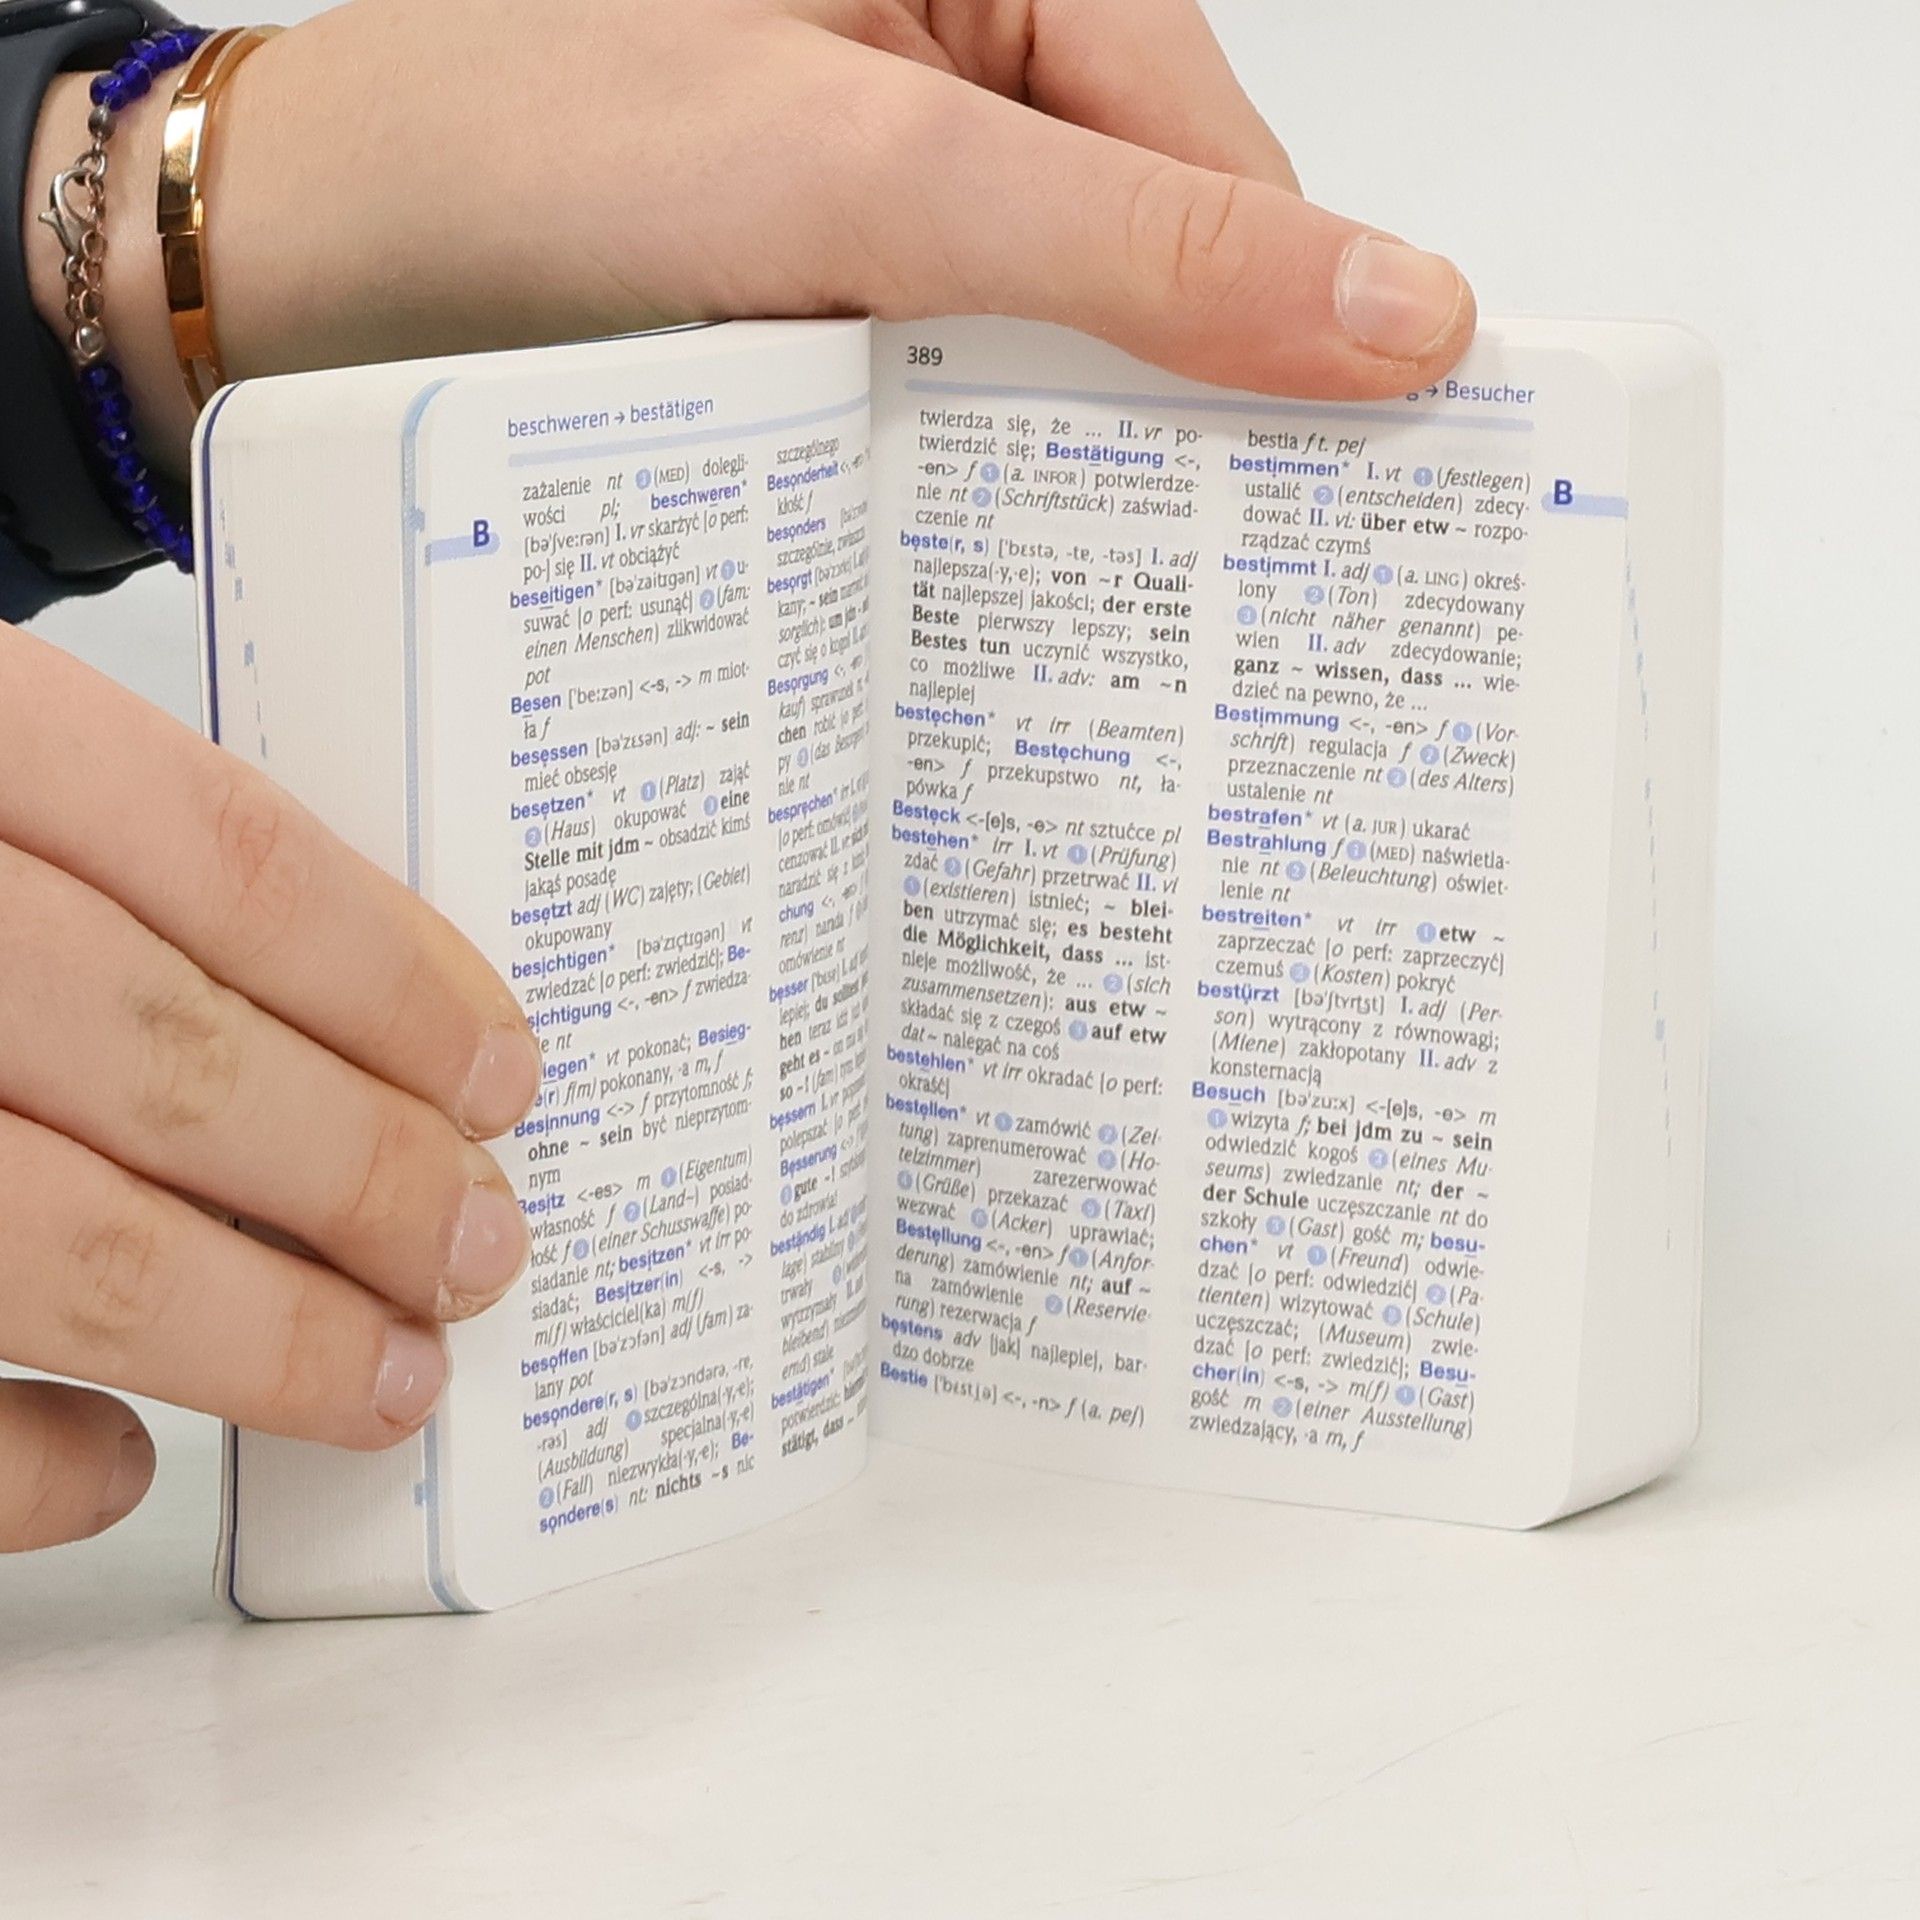 beschweren → bestätigen
B
zażalenie nt ③ (MED) dolegli-
wości pl; beschweren*
[bəˈʃveːrən] I. vr skarżyć [o perf:
po-] się II. vt obciążyć
beseitigen* [bəˈzaitɪgən] vt ① u-
suwać [o perf: usunąć] ② (fam:
einen Menschen) zlikwidować
pot
Besen [ˈbeːzən] <-s, -> m miot-
ła f
besessen [bəˈzɛsən] adj: ~ sein
mieć obsesję
besetzen* vt ① (Platz) zająć
② (Haus) okupować ③ eine
Stelle mit jdm ~ obsadzić kimś
jakąś posadę
besetzt adj (WC) zajęty; (Gebiet)
okupowany
besichtigen* [bəˈzɪçtɪgən] vt
zwiedzać [o perf: zwiedzić]; Be-
sichtigung <-, -en> f zwiedza-
nt
vt pokonać; Besieg-
f(m) pokonany, -a m, f
Besinnung <-> f przytomność f;
ohne ~ sein być nieprzytom-
nym
Besitz <-es> m ① (Eigentum)
własność f ② (Land~) posiad-
łość f ③ (einer Schusswaffe) po-
siadanie nt; besitzen* vt irr po-
siadać; Besitzer(in) <-s, ->
m(f) właściciel(ka) m(f)
besoffen [bəˈzɔfən] adj (fam) za-
lany pot
besondere(r, s) [bəˈzɔndərə, -rɐ,
-rəs] adj ① szczególna(-y,-e);
(Ausbildung) specjalna(-y,-e)
② (Fall) niezwykła(-y,-e); Be-
sondere(s) nt: nichts ~s nic
szczególnego
Besonderheit
kłość f
besonders
szczególnie, zwłaszcza
besorgt
Besorgung
kauf) sprawunek
chen robić
py ② (das Besorgen)
nie nt
besprechen*
[o perf: omówić]
naradzić się z
chung
omówienie nt
besser
geht es ~
so ~!
bessern
polepszać
Besserung
① gute ~!
do zdrowia!
beständig
trwały
wytrzymały
stale
bestätigen*
potwierdzić;
stätigt, dass
389
→ Besucher
B
twierdza się, że ... II. vr po-
twierdzić się; Bestätigung <-,
-en> f ① (a. INFOR) potwierdze-
nie nt ② (Schriftstück) zaświad-
czenie nt
beste(r, s) [ˈbɛstə, -tɐ, -təs] I. adj
najlepsza(-y,-e); von ~r Quali-
tät najlepszej jakości; der erste
Beste pierwszy lepszy; sein
Bestes tun uczynić wszystko,
co możliwe II. adv: am ~n
najlepiej
bestechen* vt irr (Beamten)
przekupić; Bestechung <-,
-en> f przekupstwo nt, ła-
pówka f
Besteck <-[e]s, -e> nt sztućce pl
bestehen* irr I. vt ① (Prüfung)
zdać ② (Gefahr) przetrwać II. vi
① (existieren) istnieć; ~ blei-
ben utrzymać się; es besteht
die Möglichkeit, dass ... ist-
nieje możliwość, że ... ② (sich
zusammensetzen): aus etw ~
składać się z czegoś ③ auf etw
dat ~ nalegać na coś
bestehlen* vt irr okradać [o perf:
okraść]
bestellen* vt ① zamówić ② (Zei-
tung) zaprenumerować ③ (Ho-
telzimmer) zarezerwować
④ (Grüße) przekazać ⑤ (Taxi)
wezwać ⑥ (Acker) uprawiać;
Bestellung <-, -en> f ① (Anfor-
derung) zamówienie nt; auf ~
na zamówienie ② (Reservie-
rung) rezerwacja f
bestens adv [jak] najlepiej, bar-
dzo dobrze
Bestie [ˈbɛstjə] <-, -n> f (a. pej)
bestia f t. pej
bestimmen* I. vt ① (festlegen)
ustalić ② (entscheiden) zdecy-
dować II. vi: über etw ~ rozpo-
rządzać czymś
bestimmt I. adj ① (a. LING) okreś-
lony ② (Ton) zdecydowany
③ (nicht näher genannt) pe-
wien II. adv zdecydowanie;
ganz ~ wissen, dass ... wie-
dzieć na pewno, że ...
Bestimmung <-, -en> f ① (Vor-
schrift) regulacja f ② (Zweck)
przeznaczenie nt ③ (des Alters)
ustalenie nt
bestrafen* vt (a. JUR) ukarać
Bestrahlung f ① (MED) naświetla-
nie nt ② (Beleuchtung) oświet-
lenie nt
bestreiten* vt irr ① etw ~
zaprzeczać [o perf: zaprzeczyć]
czemuś ② (Kosten) pokryć
bestürzt [bəˈʃtʏrtst] I. adj (Per-
son) wytrącony z równowagi;
(Miene) zakłopotany II. adv z
konsternacją
Besuch [bəˈzuːx] <-[e]s, -e> m
① wizyta f; bei jdm zu ~ sein
odwiedzić kogoś ② (eines Mu-
seums) zwiedzanie nt; der ~
der Schule uczęszczanie nt do
szkoły ③ (Gast) gość m; besu-
chen* vt ① (Freund) odwie-
dzać [o perf: odwiedzić] ② (Pa-
tienten) wizytować ③ (Schule)
uczęszczać; (Museum) zwie-
dzać [o perf: zwiedzić]; Besu-
cher(in) <-s, -> m(f) ① (Gast)
gość m ② (einer Ausstellung)
zwiedzający, -a m, f